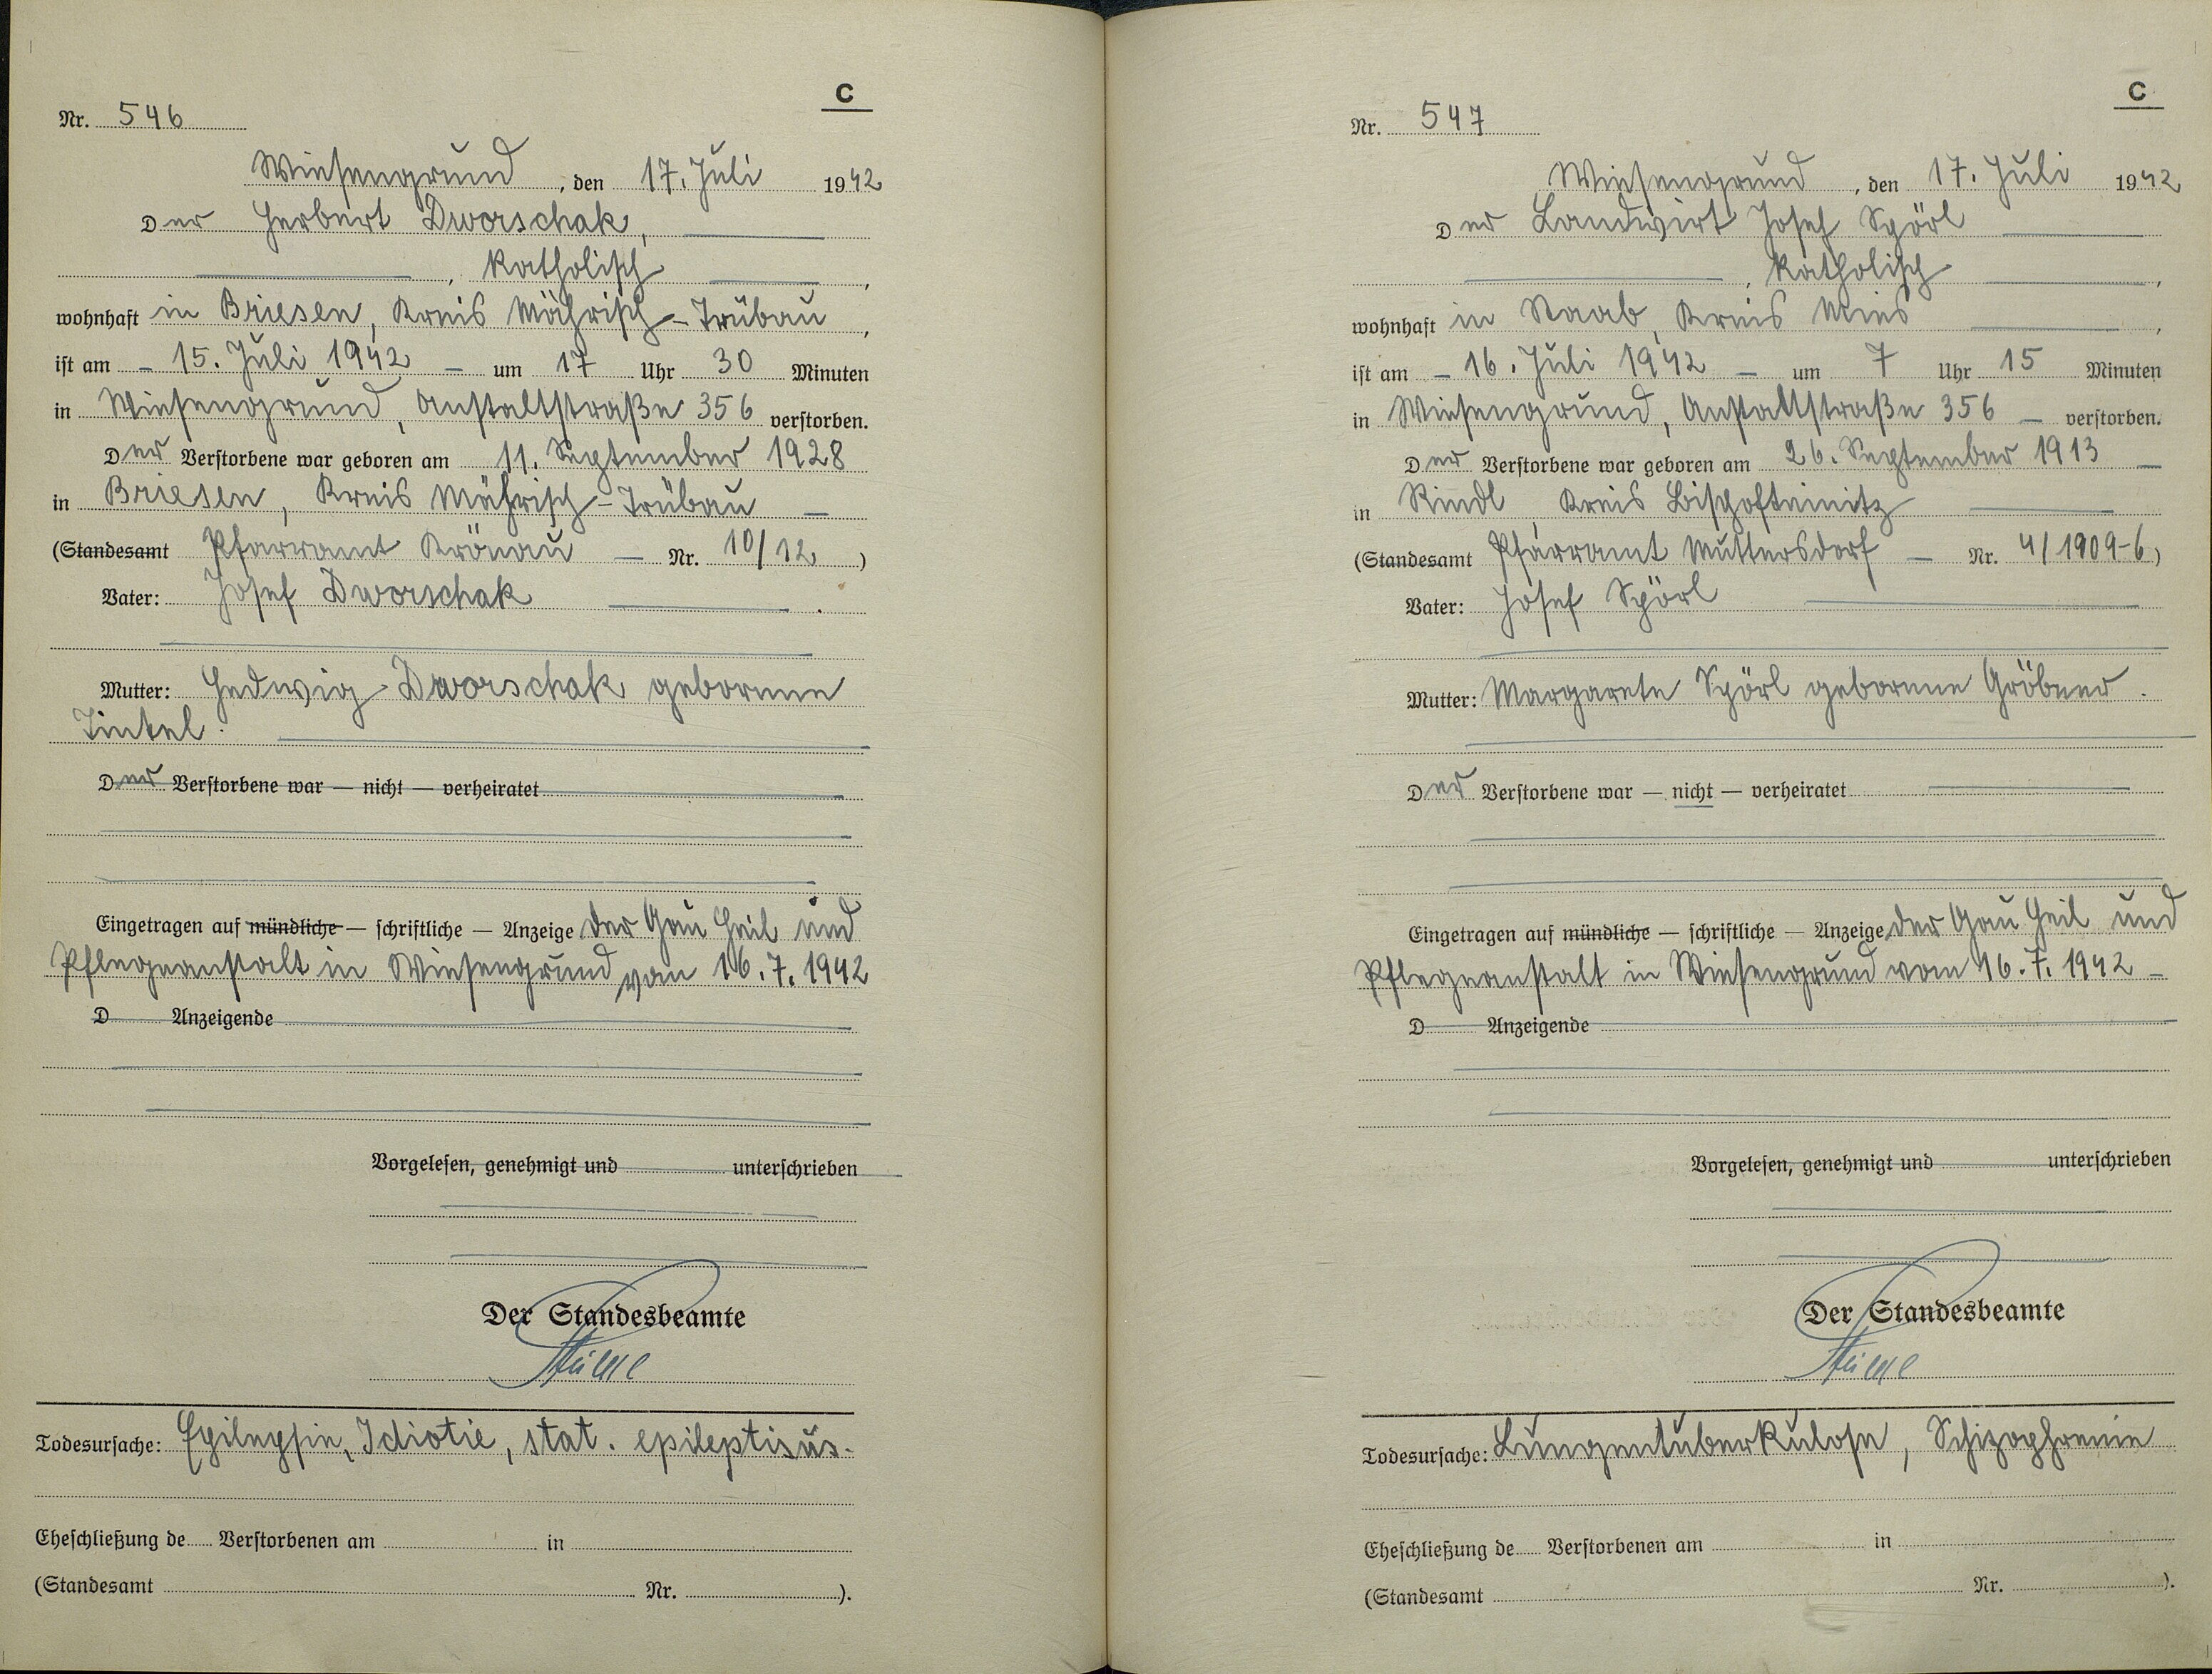 C
Nr. 546
Wiesengrund, den 17. Juli 1942
Der Herbert Dworschak,
, katholisch,
wohnhaft in Briesen, Kreis Mährisch-Trübau,
ist am - 15. Juli 1942 - um 17 Uhr 30 Minuten
in Wiesengrund, Anstaltstraße 356 verstorben.
Der Verstorbene war geboren am 11. September 1928
in Briesen, Kreis Mährisch-Trübau -
(Standesamt Pfarramt Krönau - Nr. 10/12)
Vater: Josef Dworschak.
Mutter: Hedwig Dworschak geborene
Tinkel.
Der Verstorbene war — nicht — verheiratet
Eingetragen auf mündliche — schriftliche — Anzeige der Gau Heil und
Pflegeanstalt in Wiesengrund vom 16.7.1942
D Anzeigende
Vorgelesen, genehmigt und unterschrieben
Der Standesbeamte
Todesursache: Epilepsie, Idiotie, stat. epileptisus.
Eheschließung de Verstorbenen am in
(Standesamt Nr. ).
C
Nr. 547
Wiesengrund, den 17. Juli 1942
Der Landwirt Josef Spörl
, katholisch,
wohnhaft in Staab, Kreis Mies,
ist am - 16. Juli 1942 - um 7 Uhr 15 Minuten
in Wiesengrund, Anstaltstraße 356 - verstorben.
Der Verstorbene war geboren am 26. September 1913 -
in Rindl, Kreis Bischofteinitz
(Standesamt Pfarramt Muttersdorf - Nr. 4/1909-6)
Vater: Josef Spörl
Mutter: Margarete Spörl geborene Gröbner.
Der Verstorbene war — nicht — verheiratet
Eingetragen auf mündliche — schriftliche — Anzeige der Gau Heil und
Pflegeanstalt in Wiesengrund vom 16.7.1942 -
D Anzeigende
Vorgelesen, genehmigt und unterschrieben
Der Standesbeamte
Todesursache: Lungentuberkulose, Schizophrenie
Eheschließung de Verstorbenen am in
(Standesamt Nr. ).